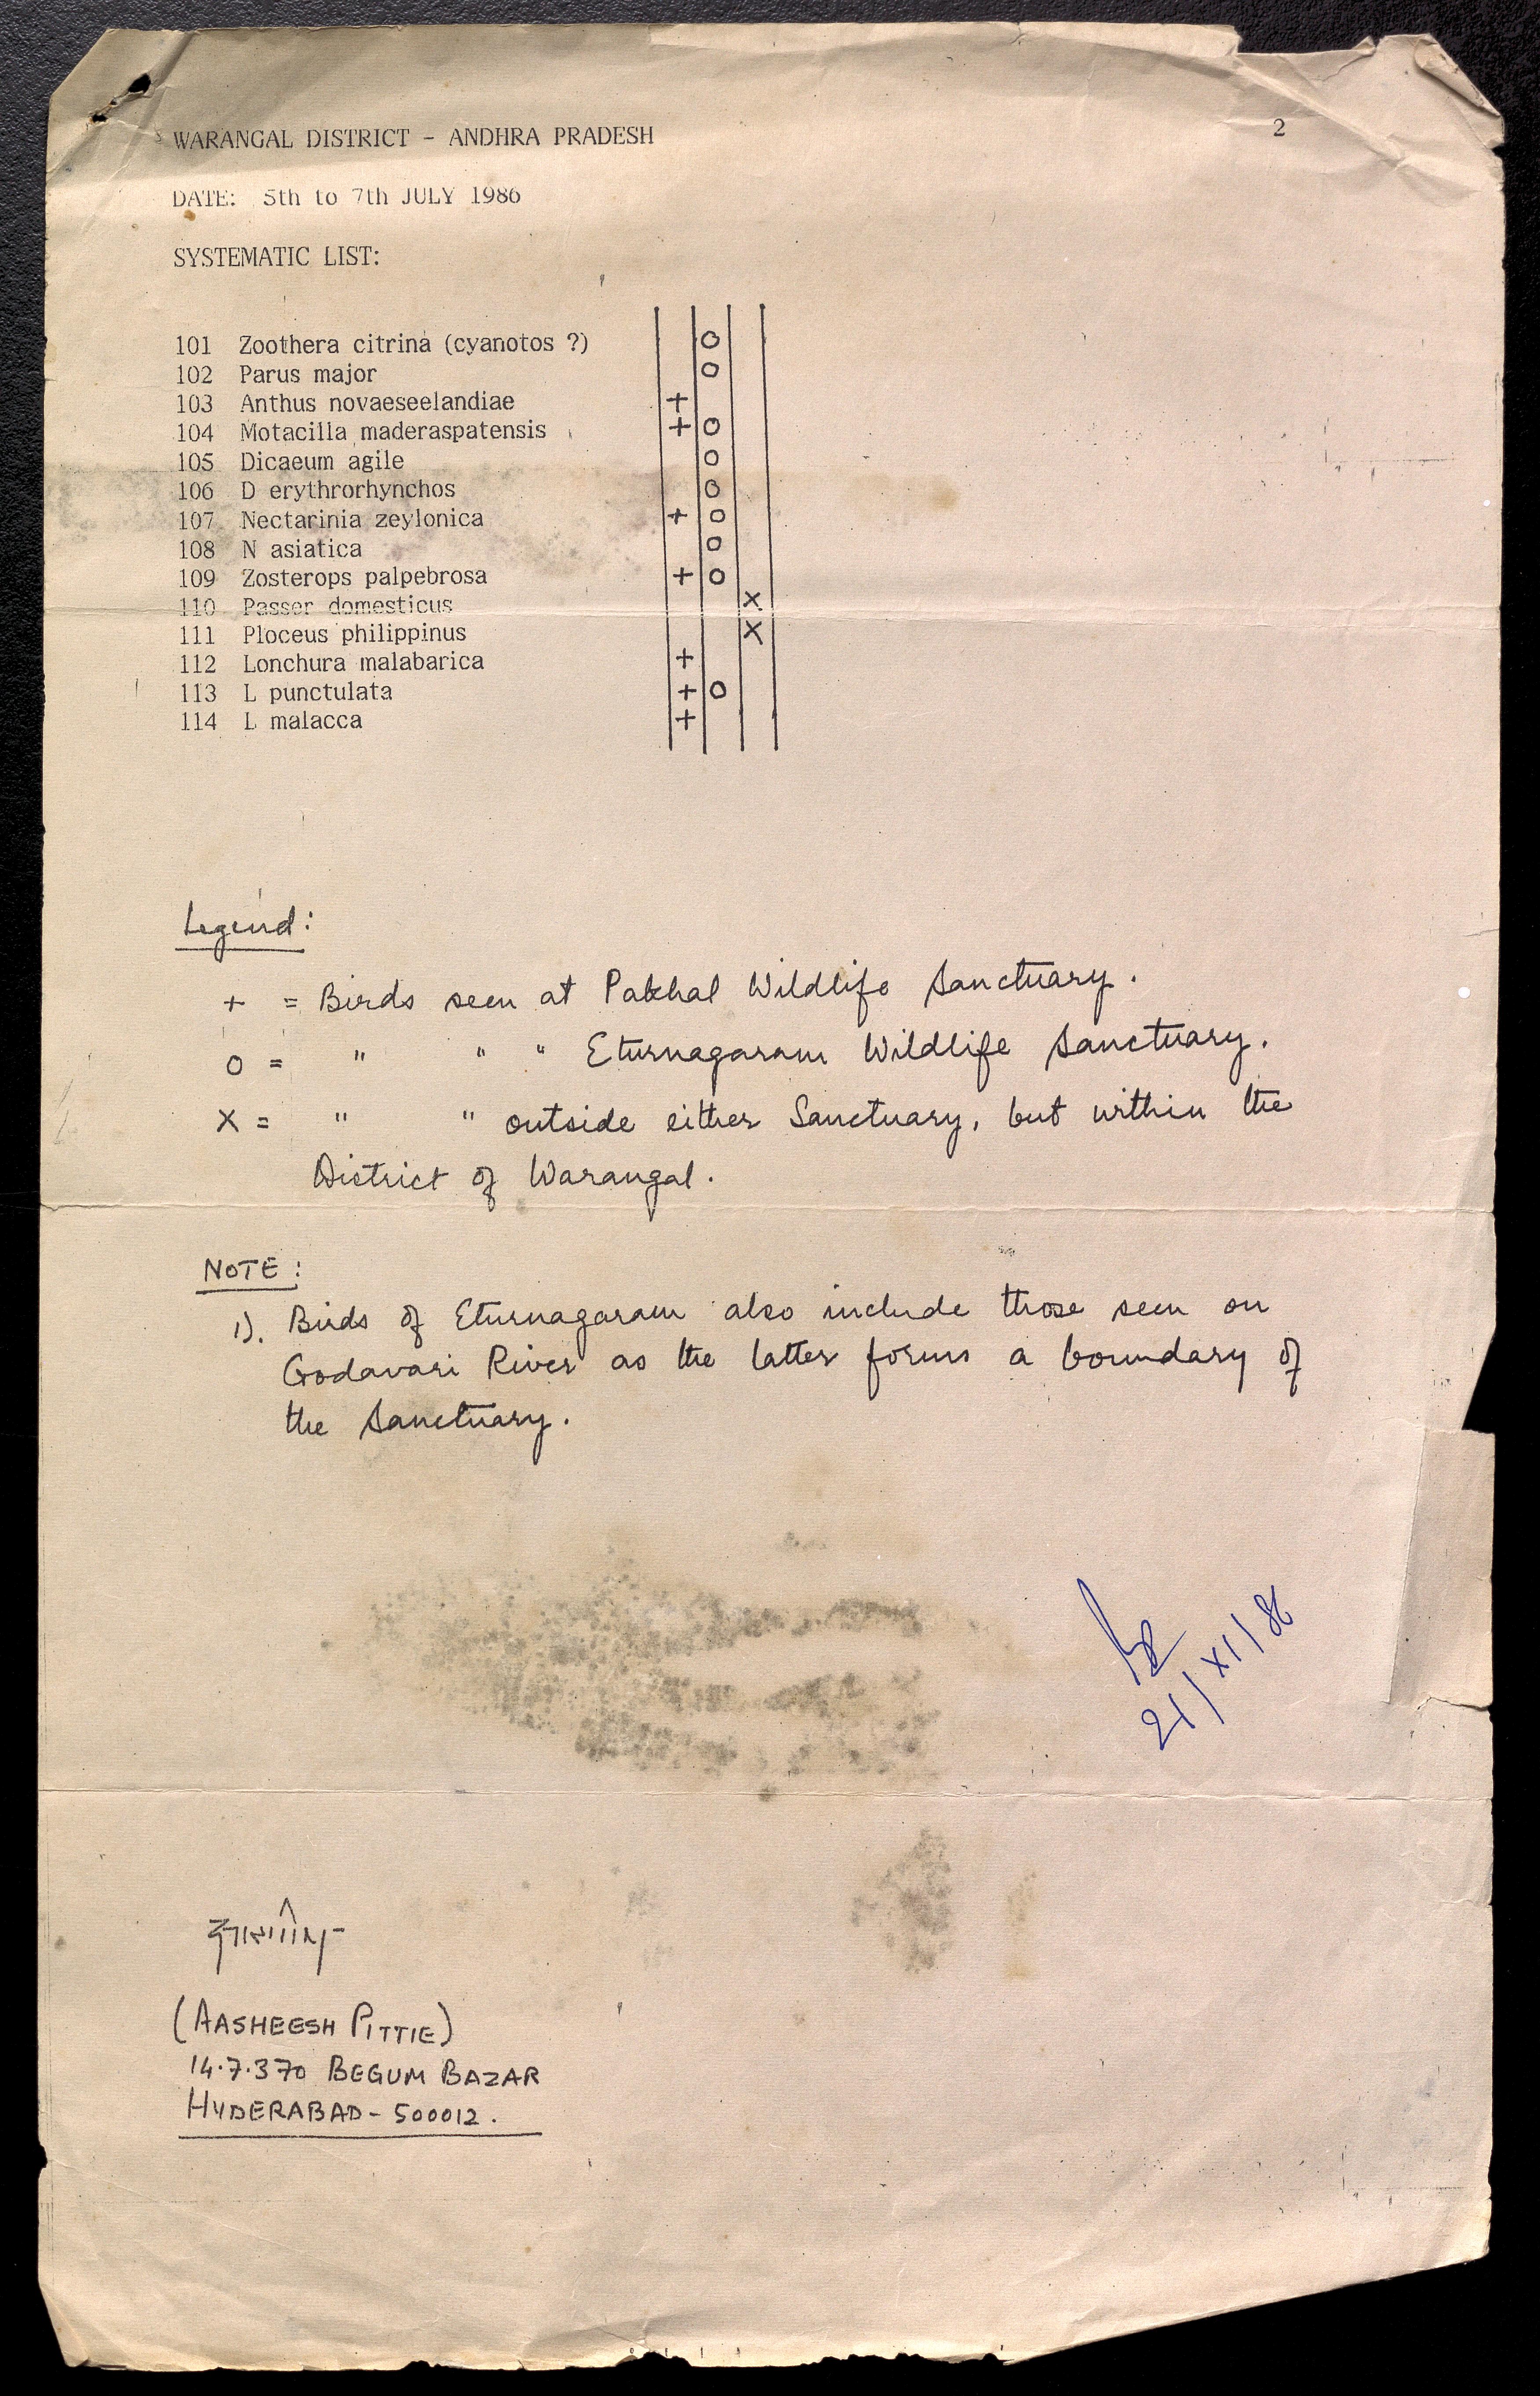 WARANGAL DISTRICT - ANDHRA PRADESH 2
DATE: 5th to 7th JULY 1986
SYSTEMATIC LIST:
101 Zoothera citrina (cyanotos ?) o
102 Parus major o
103 Anthus novaeseelandiae +
104 Motacilla maderaspatensis + o
105 Dicaeum agile o
106 D erythrorhynchos o
107 Nectarinia zeylonica + o
108 N asiatica o
109 Zosterops palpebrosa + o
110 Passer domesticus x
111 Ploceus philippinus x
112 Lonchura malabarica +
113 L punctulata + o
114 L malacca +
Legend:
+ = Birds seen at Pakhal Wildlife Sanctuary.
o = " " " Eturnagaram Wildlife Sanctuary.
x = " " outside either Sanctuary, but within the
District of Warangal.
NOTE:
1). Birds of Eturnagaram also include those seen on
Godavari River as the latter forms a boundary of
the Sanctuary.
21/XI/86
(AASHEESH PITTIE)
14.7.370 BEGUM BAZAR
HYDERABAD - 500012.